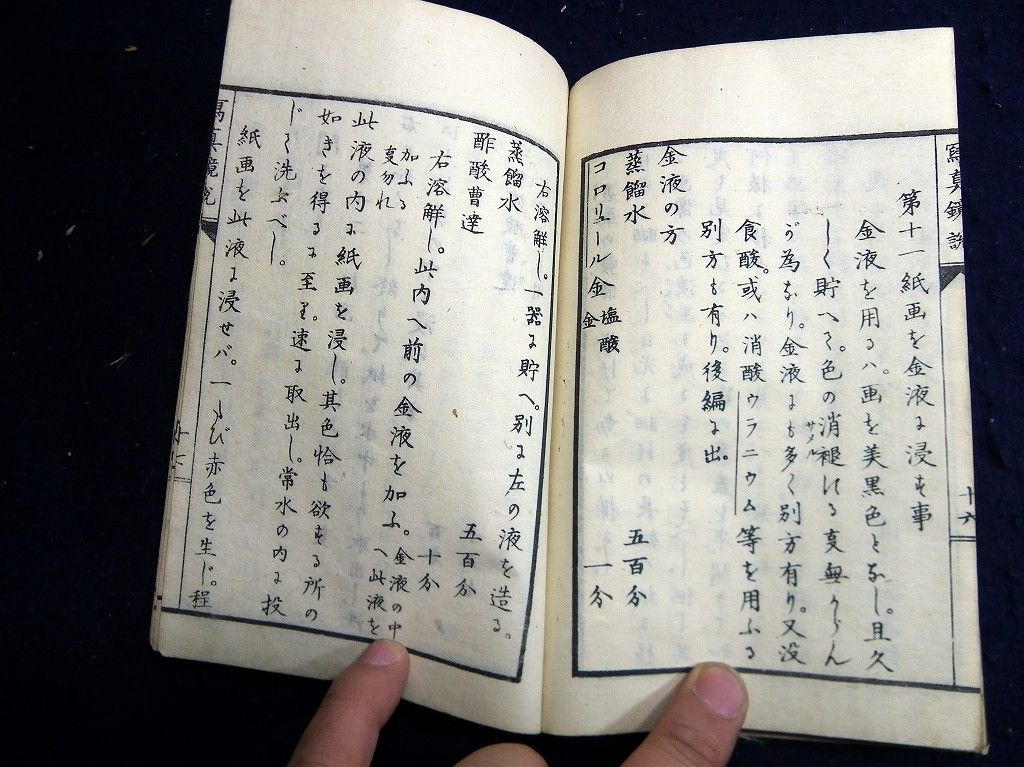 寫真鏡説
十六
第十一紙画を金液に浸す事
金液を用るハ。画を美黒色となし。且久
しく貯へて。色の消褪する叓無からん
サメル
が為なり。金液にも多く別方有り。又没
食酸。或ハ消酸ウラニウム等を用ふる
別方も有り。後編に出。
金液の方
蒸餾水 五百分
コロリュール金 塩酸金 一分
右溶解し。一器に貯へ。別に左の液を造る。
蒸餾水 五百分
酢酸曹達 十分
右溶解し。此内へ前の金液を加ふ。金液の中へ此液を
加ふる叓勿れ
此液の内に紙画を浸し。其色恰も欲する所の
如きを得るに至り。速に取出し。常水の内に投
じて洗ふべし。
紙画を此液に浸せバ。一たび赤色を生じ。程
寫真鏡説